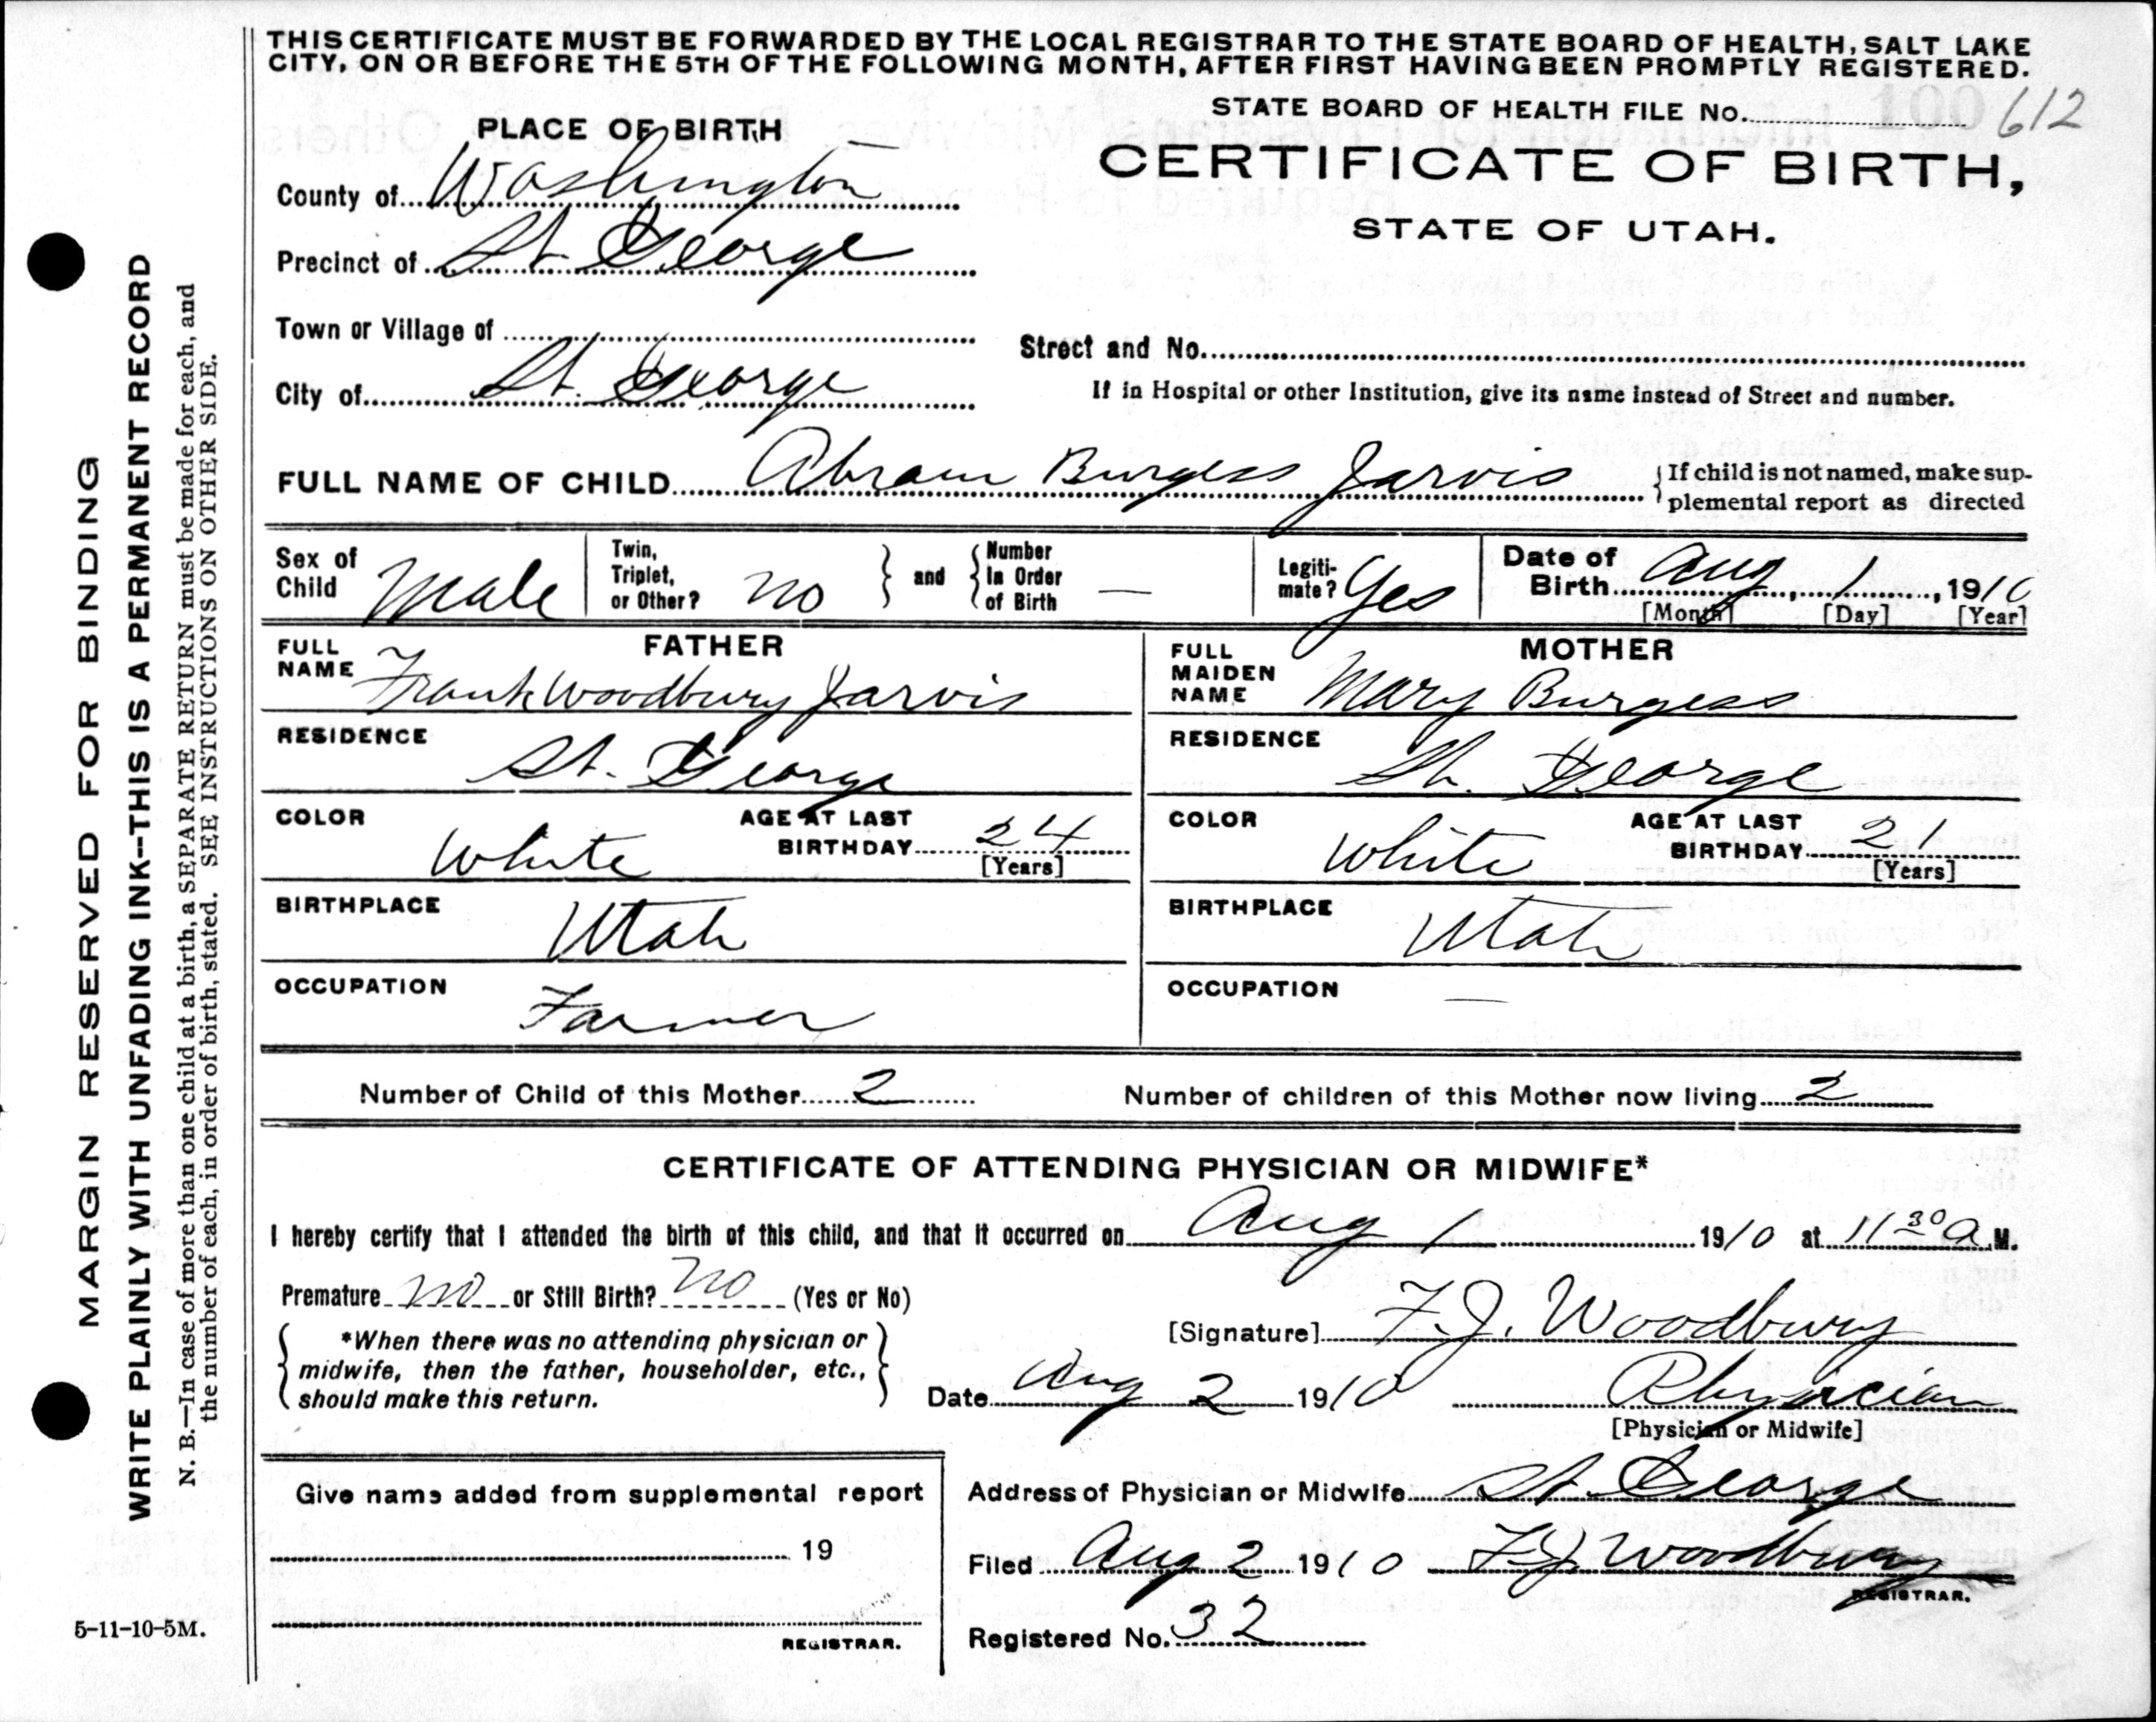 THIS CERTIFICATE MUST BE FORWARDED BY THE LOCAL REGISTRAR TO THE STATE BOARD OF HEALTH, SALT LAKE
CITY, ON OR BEFORE THE 5TH OF THE FOLLOWING MONTH, AFTER FIRST HAVING BEEN PROMPTLY REGISTERED.
STATE BOARD OF HEALTH FILE No. 100 612
PLACE OF BIRTH
CERTIFICATE OF BIRTH,
STATE OF UTAH.
County of Washington
Precinct of St George
Town or Village of
Street and No.
City of St. George
If in Hospital or other Institution, give its name instead of Street and number.
FULL NAME OF CHILD Abram Burgess Jarvis
If child is not named, make sup-
plemental report as directed
Sex of Child Male
Twin, Triplet, or Other? no
and Number In Order of Birth —
Legiti-mate? Yes
Date of Birth Aug 1, 1910
[Month] [Day] [Year]
FATHER
FULL NAME Frank Woodbury Jarvis
RESIDENCE St. George
COLOR White
AGE AT LAST BIRTHDAY 24
[Years]
BIRTHPLACE Utah
OCCUPATION Farmer
MOTHER
FULL MAIDEN NAME Mary Burgess
RESIDENCE St. George
COLOR White
AGE AT LAST BIRTHDAY 21
[Years]
BIRTHPLACE Utah
OCCUPATION —
Number of Child of this Mother 2
Number of children of this Mother now living 2
CERTIFICATE OF ATTENDING PHYSICIAN OR MIDWIFE*
I hereby certify that I attended the birth of this child, and that it occurred on Aug 1 1910 at 11 30 a M.
Premature no or Still Birth? no (Yes or No)
*When there was no attending physician or
midwife, then the father, householder, etc.,
should make this return.
[Signature] F. J. Woodbury
Date Aug 2 1910 Physician
[Physician or Midwife]
Give name added from supplemental report
19
REGISTRAR.
Address of Physician or Midwife St. George
Filed Aug 2 1910 F. J. Woodbury
REGISTRAR.
Registered No. 32
MARGIN RESERVED FOR BINDING
WRITE PLAINLY WITH UNFADING INK--THIS IS A PERMANENT RECORD
N. B.—In case of more than one child at a birth, a SEPARATE RETURN must be made for each, and
the number of each, in order of birth, stated. SEE INSTRUCTIONS ON OTHER SIDE.
5-11-10-5M.